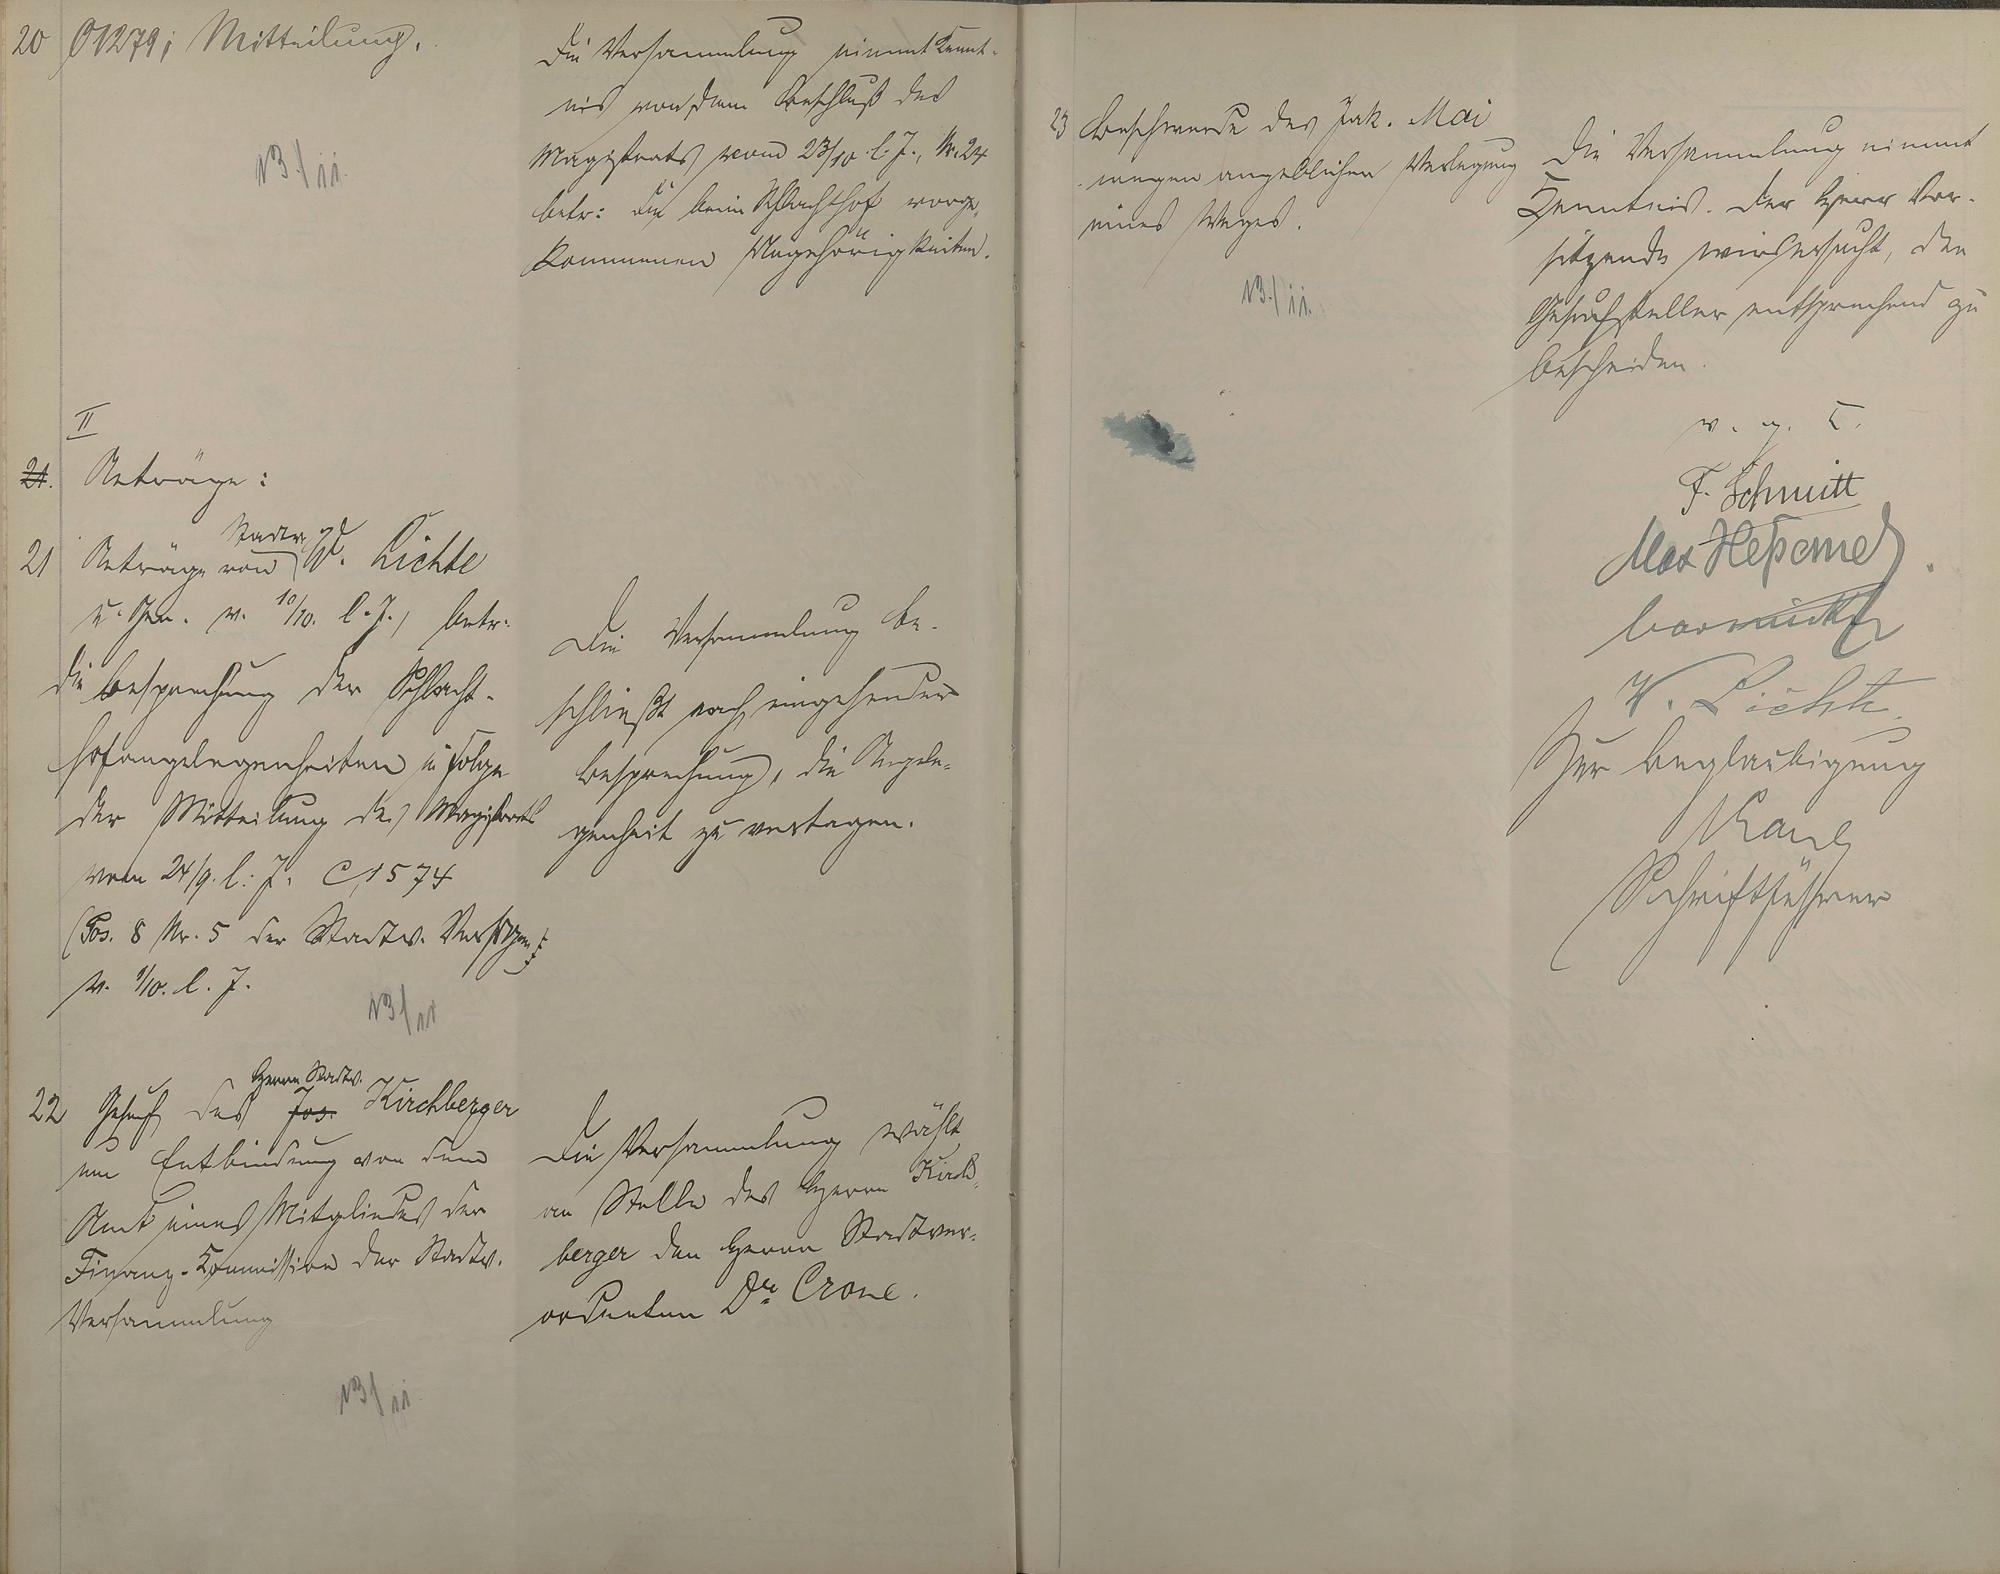 20 O1279; Mitteilung.
Die Versammlung nimmt Kennt-
nis von dem Beschluß des
Magistrats vom 23/10. l. J., Nr. 24
betr: die beim Schlachthof vorge-
kommenen Ungehörigkeiten.
13./11.
II
21. Anträge:
21 Anträge von Stadtv. W. Lichte
u. Gen. v. 10/10. l. J., betr.
die Besprechung der Schlacht-
hofangelegenheiten in Folge
der Mitteilung des Magistrats
vom 24/9. l. J. C 1574
(Pos. 8 Nr. 5 der Stadtv. Versstzg.
v. 1/10. l. J.
13/11
Die Versammlung be-
schließt nach eingehender
Besprechung, die Angele-
genheit zu vertagen.
22 Gesuch des Jos. Herrn Stadtv. Kirchberger
um Entbindung von dem
Amt eines Mitgliedes der
Finanz-Kommission der Stadtv.
Versammlung
13/11.
Die Versammlung wählt
an Stelle des Herrn Kirch-
berger den Herrn Stadtver-
ordneten Dr. Crone.
23 Beschwerde des Jak. Mai
wegen angeblicher Verlegung
eines Weges.
13./11.
Die Versammlung nimmt
Kenntnis. Der Herr Vor-
sitzende wird ersucht, den
Gesuchsteller entsprechend zu
bescheiden.
v. g. U.
F. Schmitt
Max Heßemer.
W. Lichte.
Zur Beglaubigung
Schriftführer